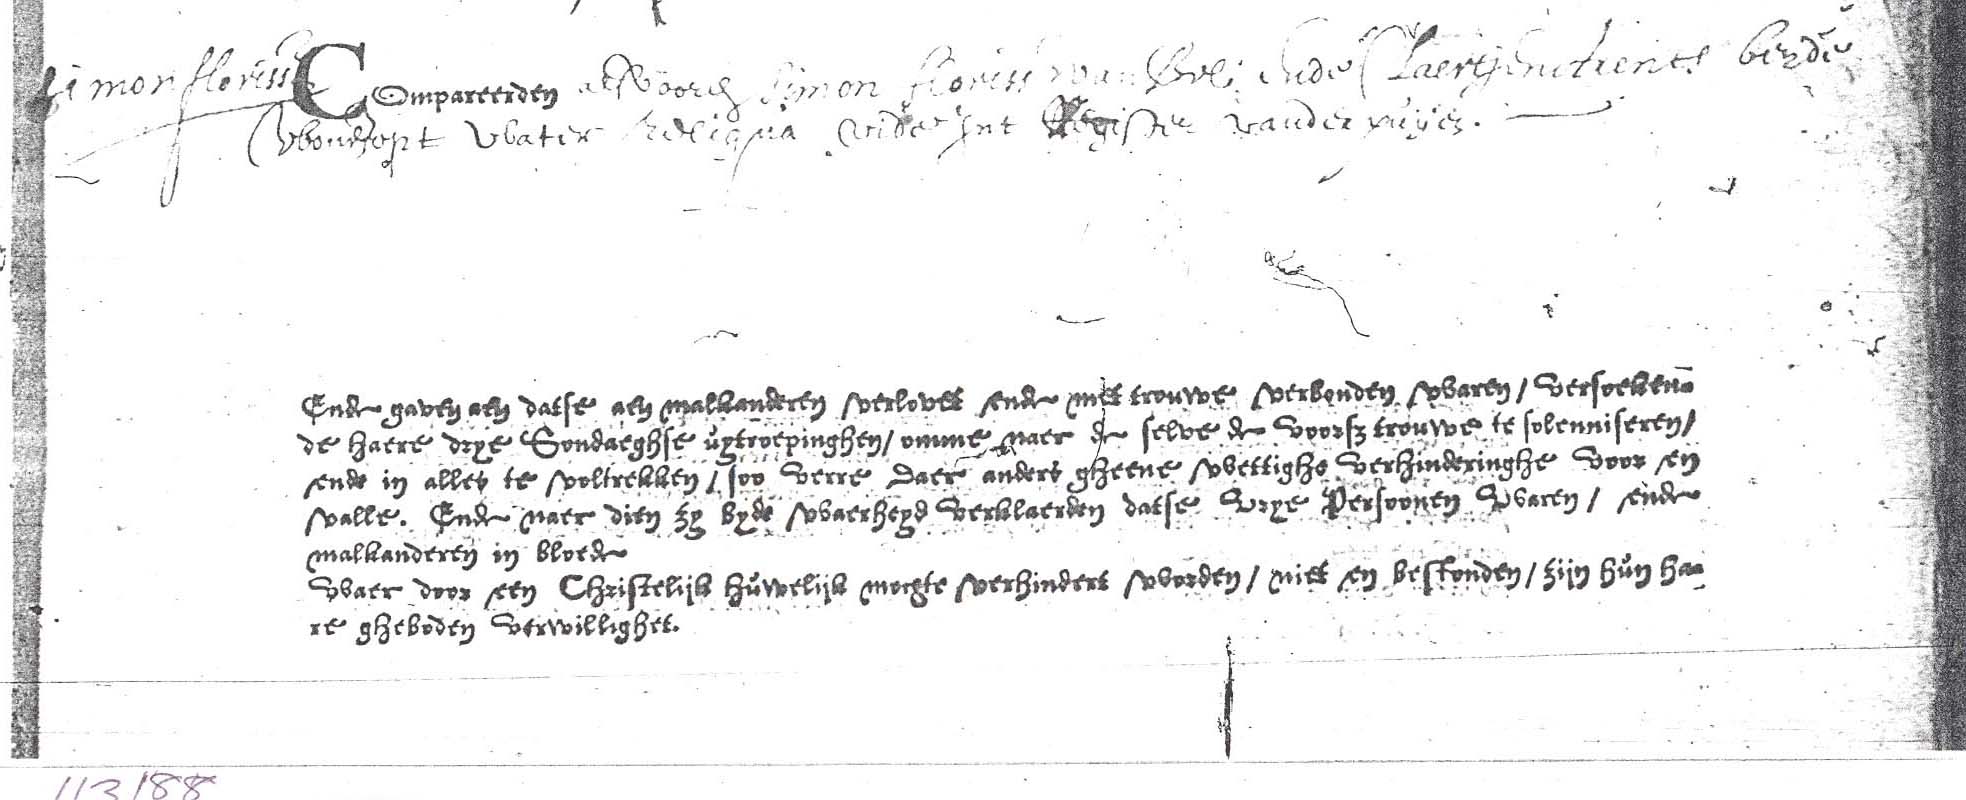 Simon florissz Compareerden als vooren Simon floriss van Bel ende Claertjen beyde
woonachtich reliqua vide int Register vander puije.
Ende gaven aen datse aen malkanderen verlovet ende met trouwe verbonden waren / versoekende
de haere drye Sondaeghse uytroepinghen / omme naer de selve de voorsz trouwe te solenniseren /
ende in alles te voltrekken / soo verre daer anders gheene wettighe verhinderinghe voor en
valle. Ende naer dien zy byde waerheyd verklaerden datse vrye Persoonen waren / ende
malkanderen in bloede
waer door een Christelijk huwelijk mochte verhindert worden / niet en bestonden / zijn hun haa
re gheboden verwillighet.
113/88